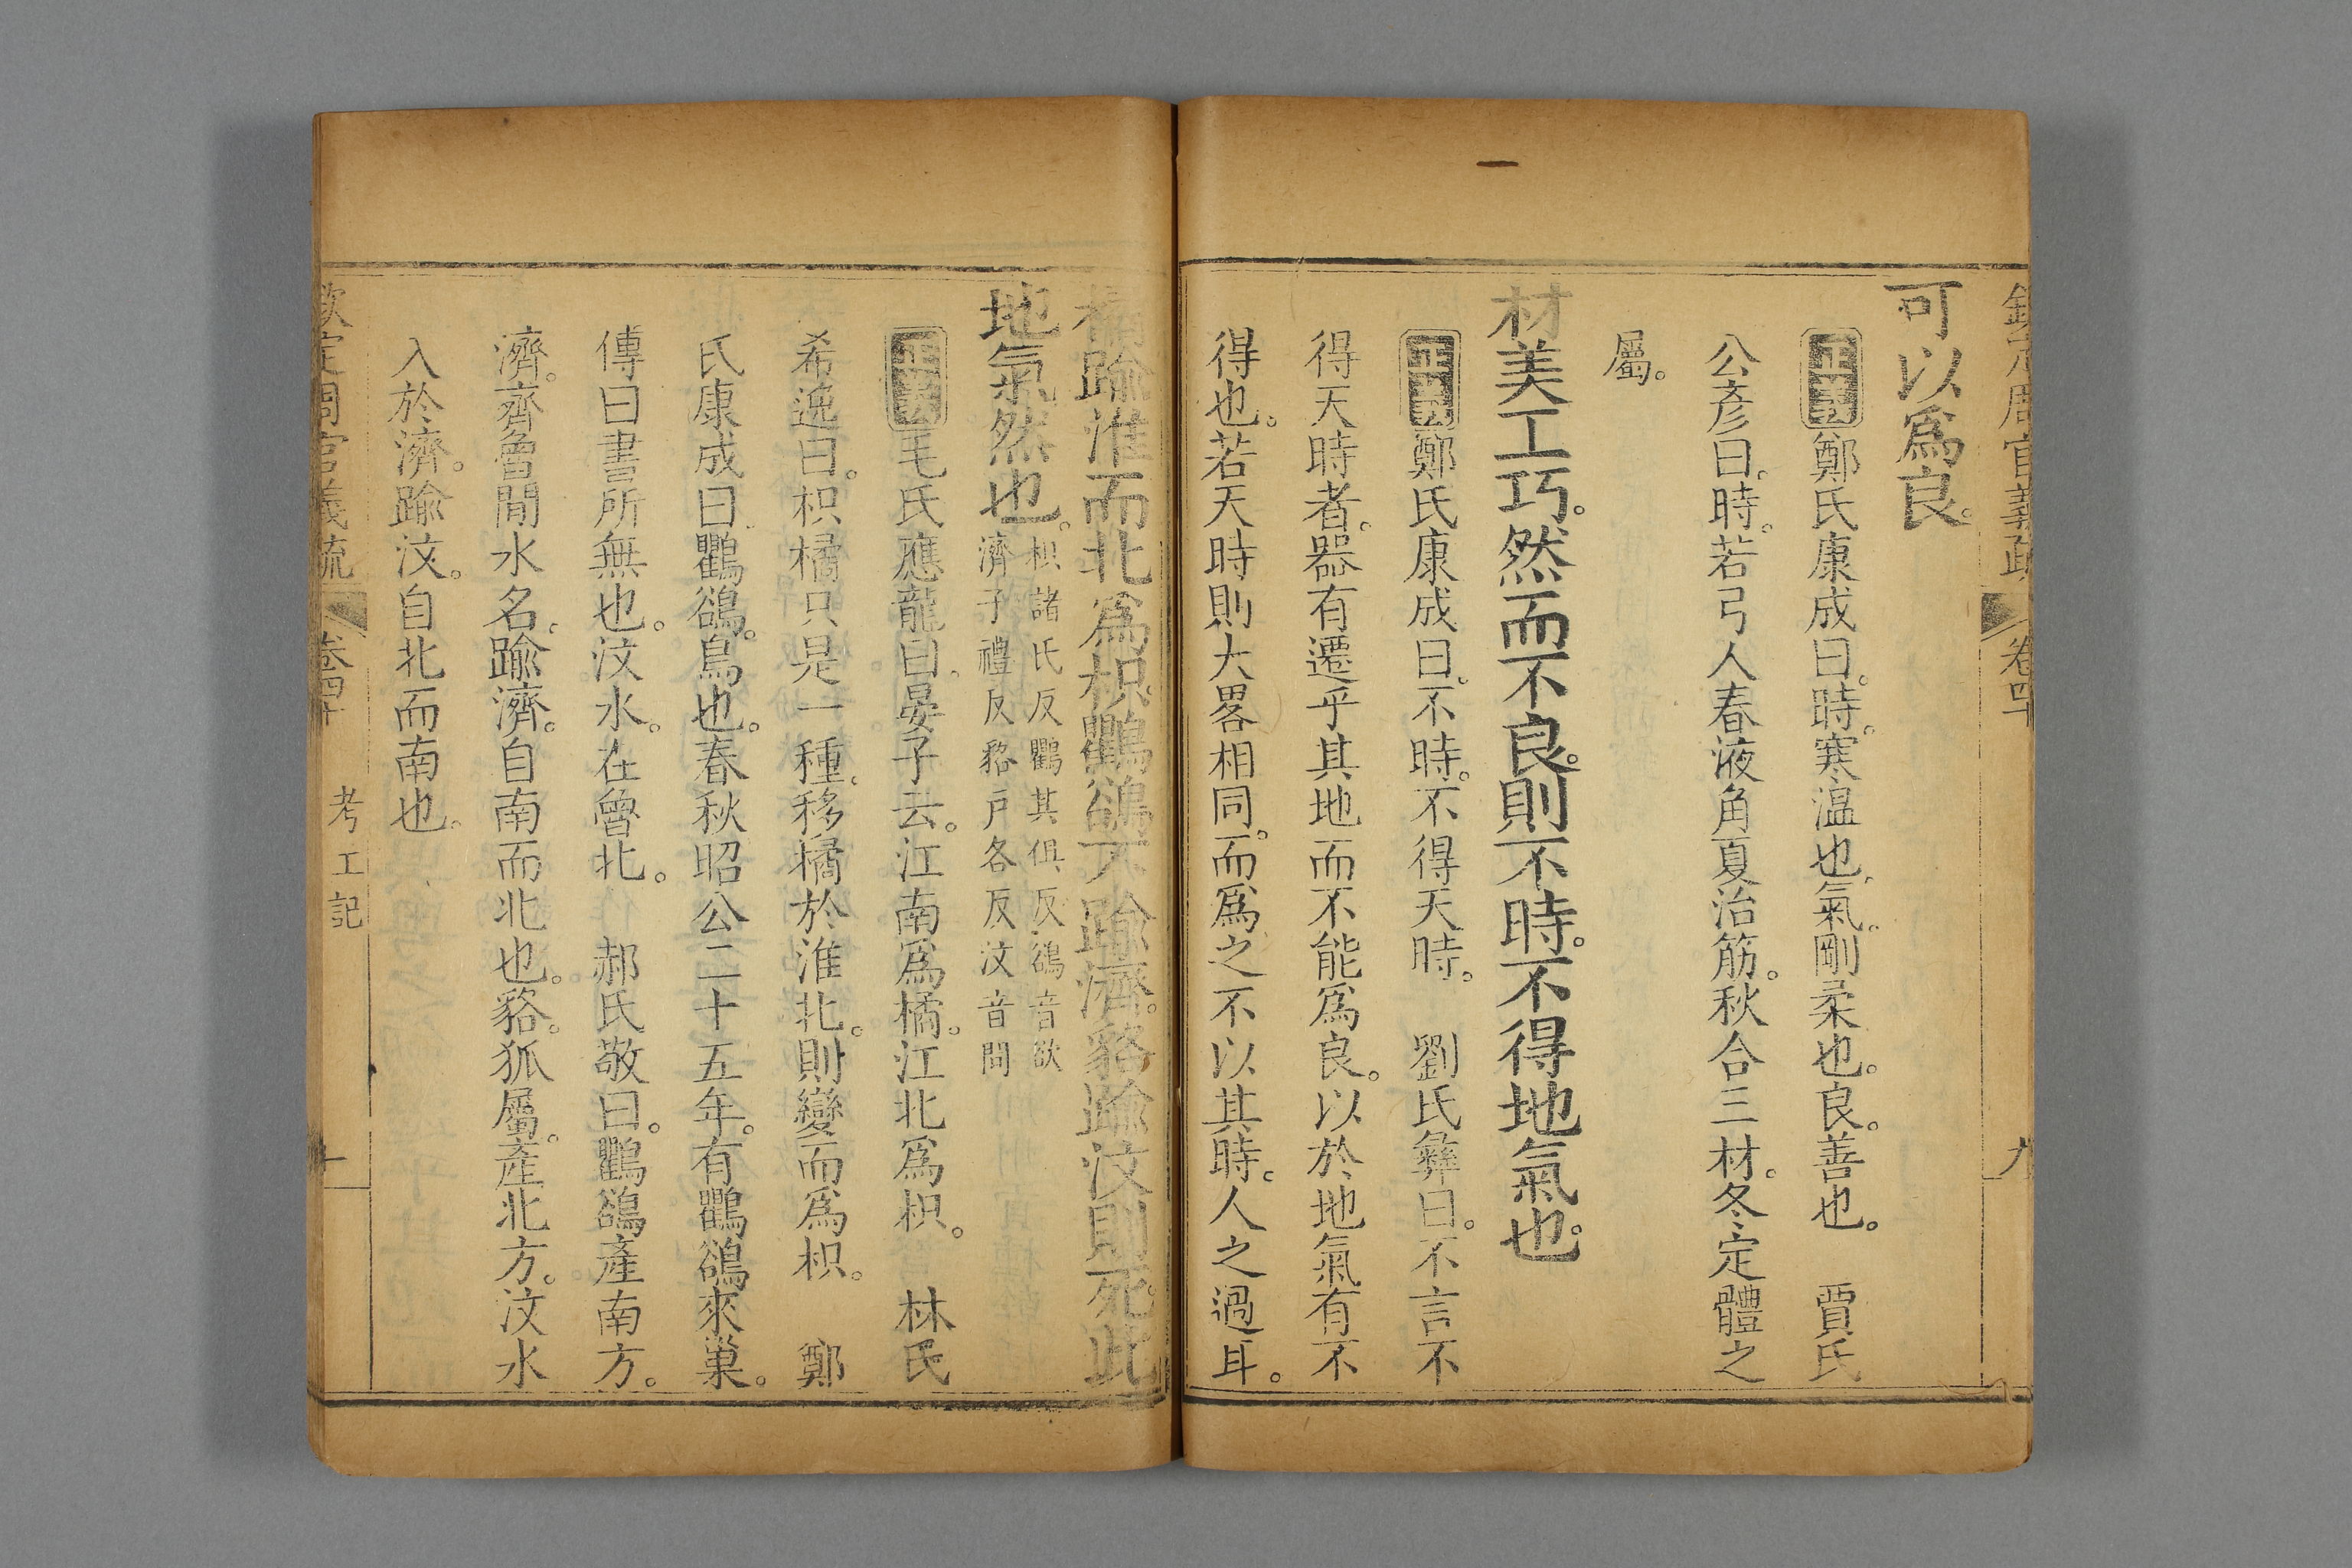 欽定周官義疏 卷四十 九
可以爲良。
正義鄭氏康成曰。時。寒温也。氣。剛柔也。良。善也。 賈氏
公彥曰。時。若弓人春液角夏治筋。秋合三材。冬定體之
屬。
材美工巧。然而不良。則不時。不得地氣也。
正義鄭氏康成曰。不時。不得天時。 劉氏彝曰。不言不
得天時者。器有遷乎其地而不能爲良。以於地氣有不
得也。若天時則大畧相同。而爲之不以其時。人之過耳。
橘踰淮而北爲枳。鸜鵒不踰濟。貉踰汶則死。此
地氣然也。枳諸氏反鸜其俱反鵒音欲
濟子禮反貉戶各反汶音問
正義毛氏應龍曰。晏子云。江南爲橘。江北爲枳。 林氏
希逸曰。枳橘只是一種。移橘於淮北。則變而爲枳。 鄭
氏康成曰。鸜鵒。鳥也。春秋昭公二十五年。有鸜鵒來巢。
傳曰書所無也。汶水。在魯北。 郝氏敬曰。鸜鵒產南方。
濟。齊魯間水名。踰濟。自南而北也。貉。狐屬。產北方。汶水
入於濟。踰汶。自北而南也。
欽定周官義疏 卷四十 考工記